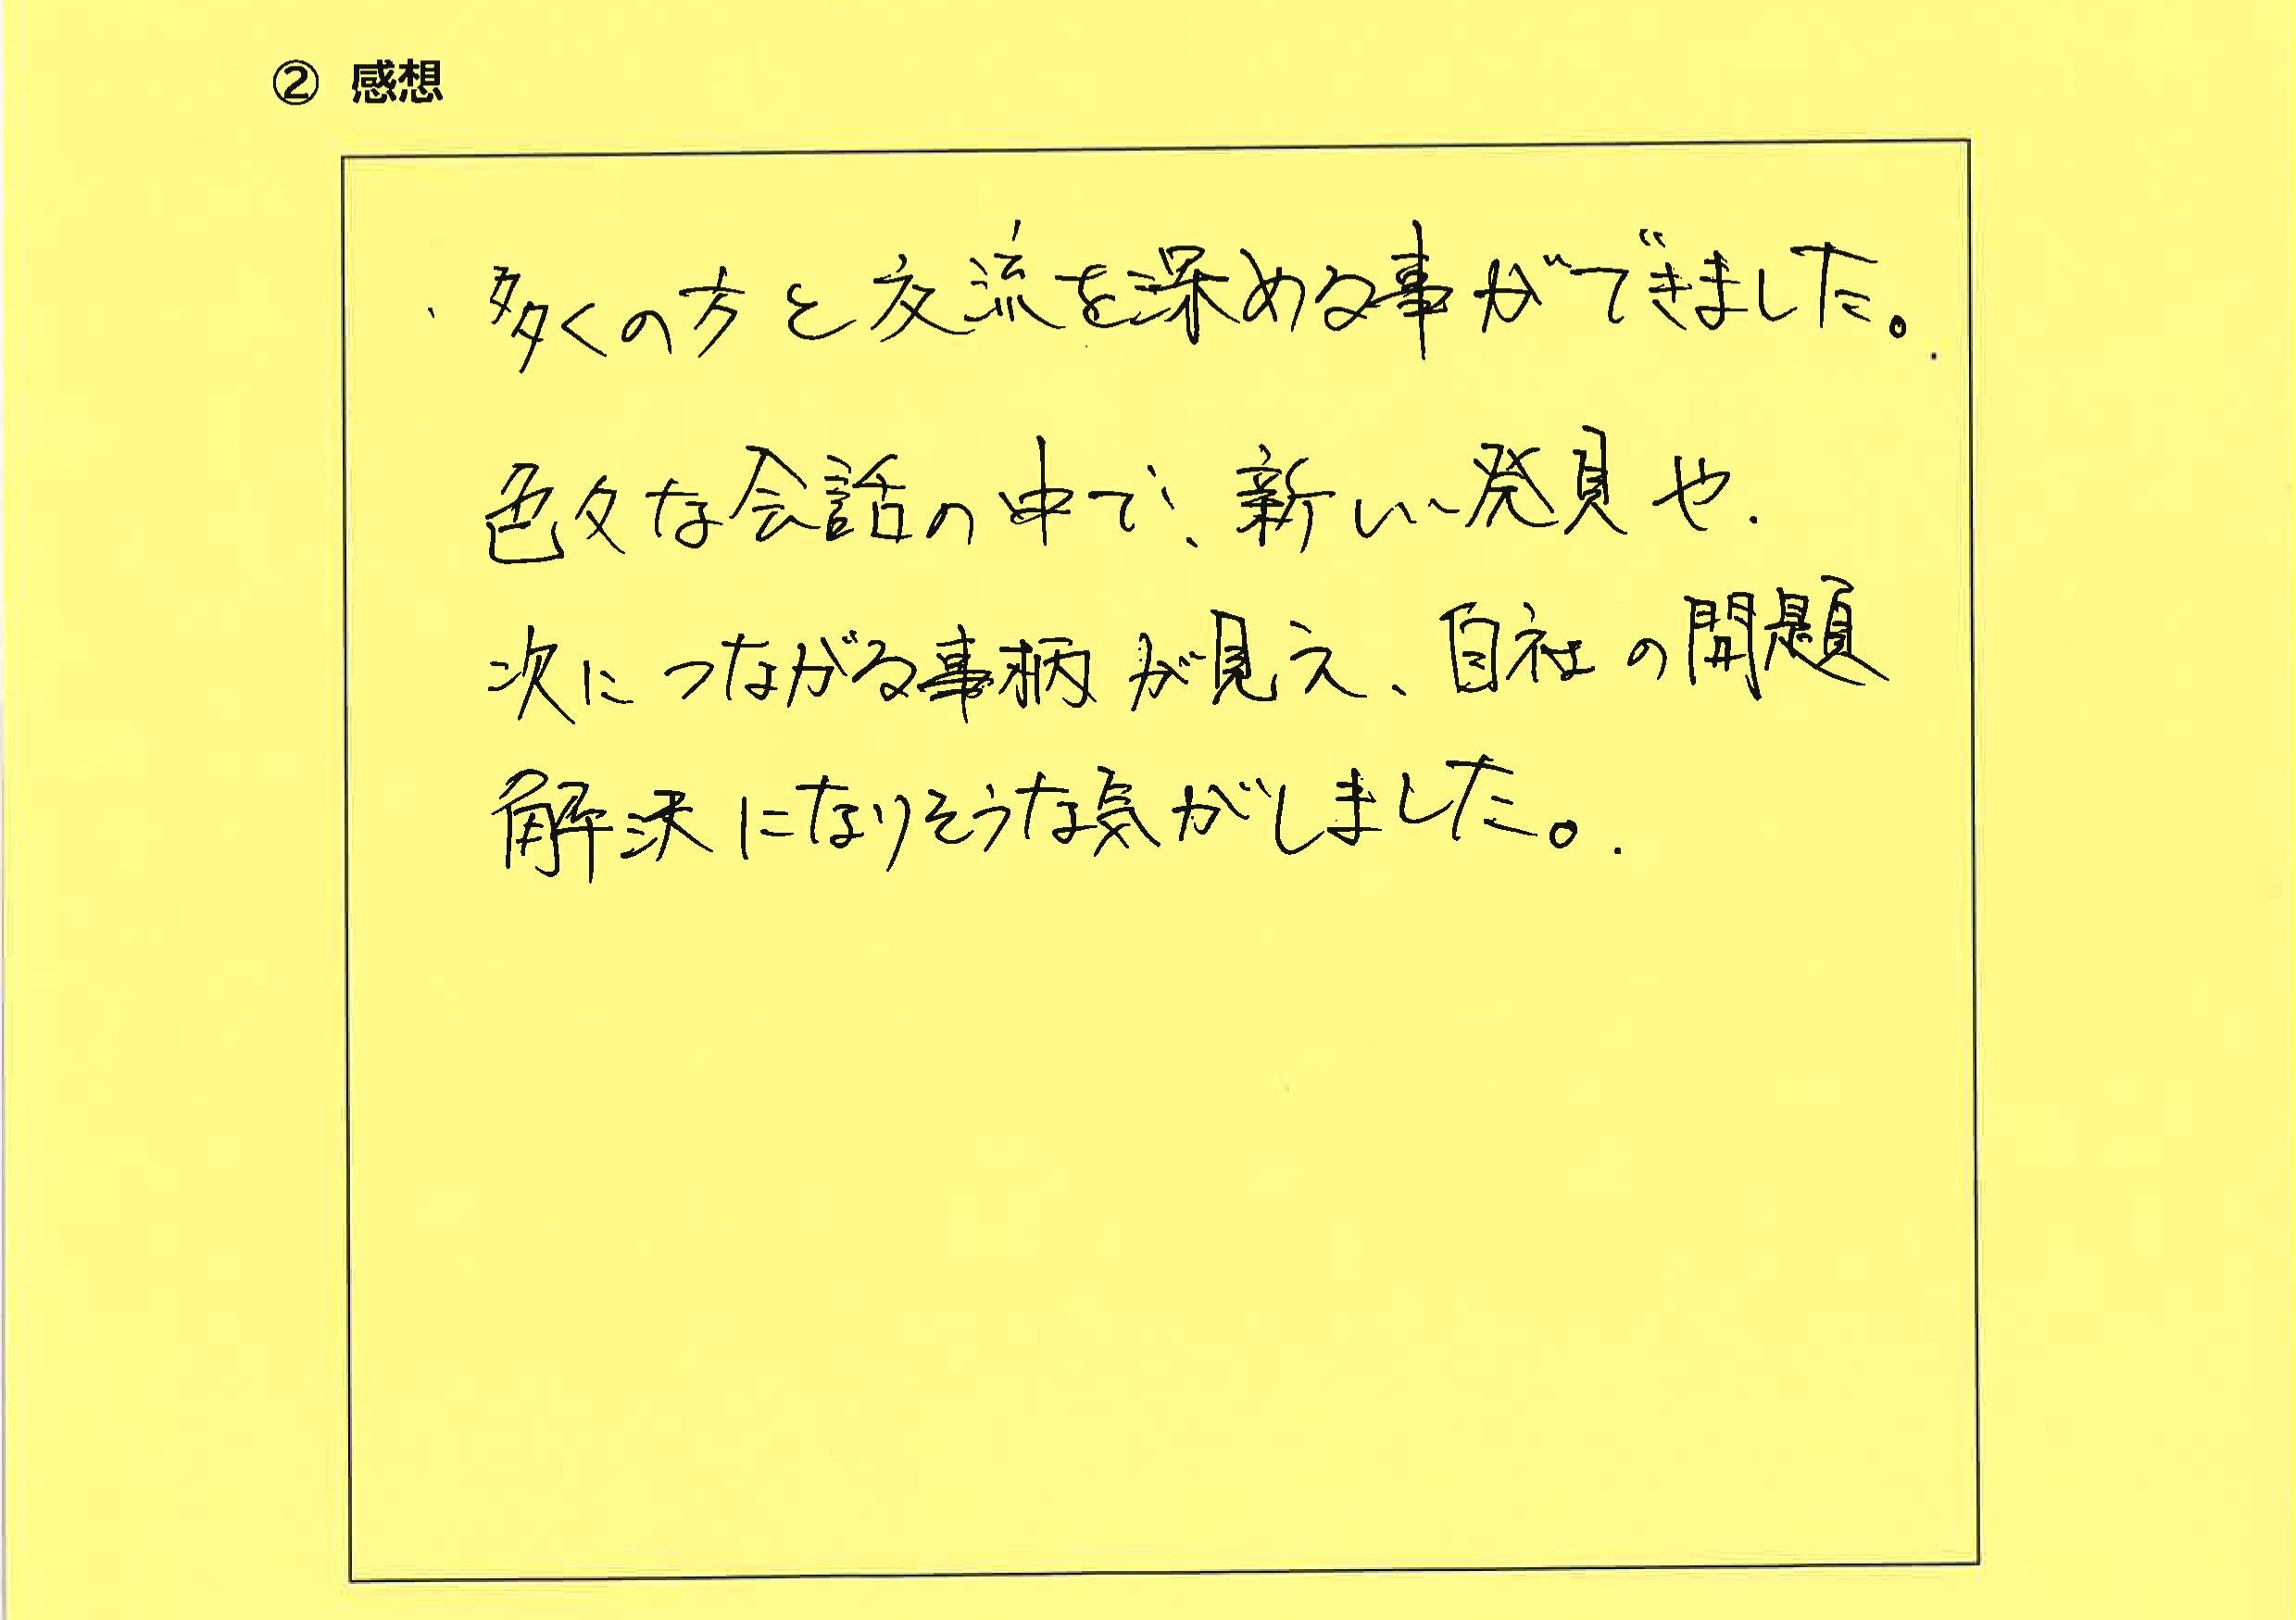 ② 感想
・多くの方と交流を深める事ができました。
色々な会話の中で、新しい発見や
次につながる事柄が見え、自社の問題
解決になりそうな気がしました。